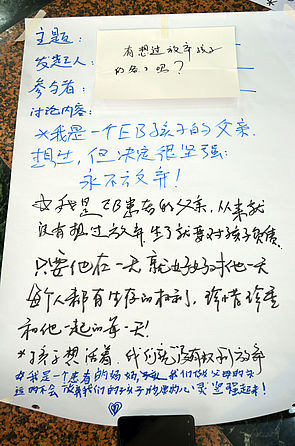 主题：
有想过放弃孩子
的爸妈吗？
发起人：
参与者：
讨论内容：
☆我是一个EB孩子的父亲.
想过，但决定很坚强：
永不放弃！
☆我是EB患者的父亲，从来就
没有想过放弃 生了就要对孩子负责
只要他在一天 就好好对他一天
每个人都有生存的权利，珍惜珍重
和他一起的每一天！
☆孩子想活着，我们就没有权利放弃
☆我是一个患者的妈妈，我们做父母的永
远的不会放弃我们的孩子 心灵坚强起来！